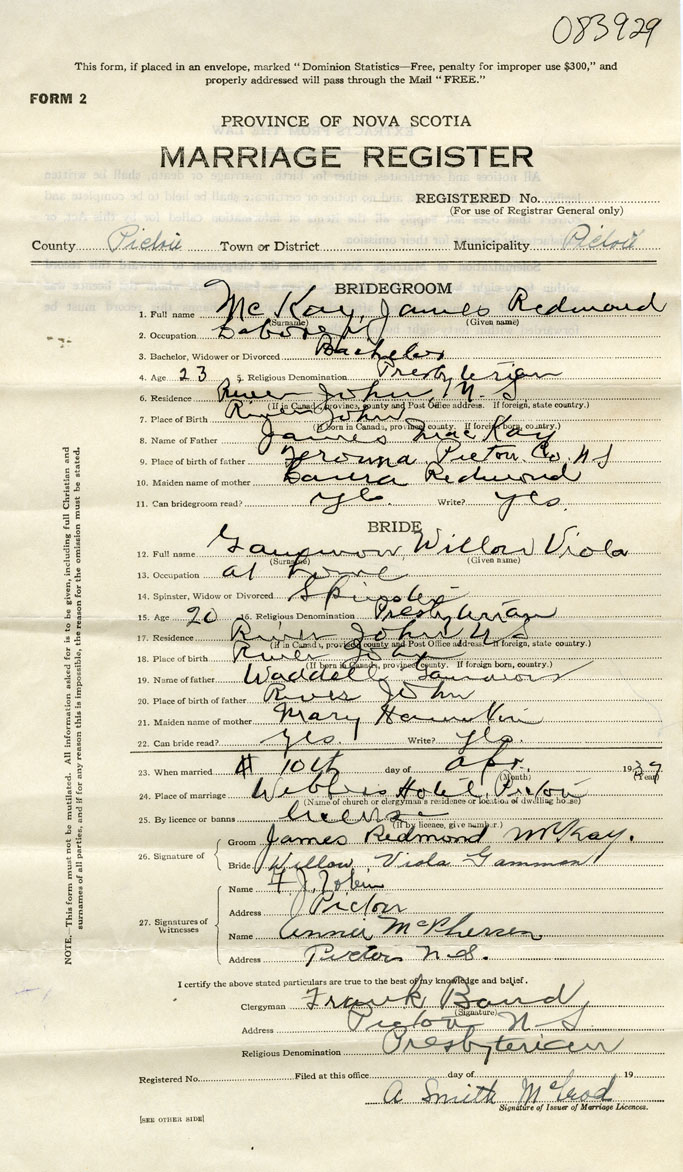 083929
This form, if placed in an envelope, marked "Dominion Statistics—Free, penalty for improper use $300," and
properly addressed will pass through the Mail "FREE."
FORM 2
PROVINCE OF NOVA SCOTIA
MARRIAGE REGISTER
REGISTERED No.
(For use of Registrar General only)
County Pictou Town or District Municipality Pictou
BRIDEGROOM
1. Full name McKay, James Redmond
(Surname) (Given name)
2. Occupation Laborer
3. Bachelor, Widower or Divorced Bachelor
4. Age 23 5. Religious Denomination Presbyterian
6. Residence River John, N.S
(If in Canada, province, county and Post Office address. If foreign, state country.)
7. Place of Birth River John
(If born in Canada, province, county. If foreign born, country.)
8. Name of Father James MacKay
9. Place of birth of father Pictou Co. N S
10. Maiden name of mother Laura Redmond
11. Can bridegroom read? yes Write? yes.
BRIDE
12. Full name Gammon Willow Viola
(Surname) (Given name)
13. Occupation at home
14. Spinster, Widow or Divorced Spinster
15. Age 20 16. Religious Denomination Presbyterian
17. Residence River John N S
(If in Canada, province, county and Post Office address. If foreign, state country.)
18. Place of birth River John
(If born in Canada, province, county. If foreign born, country.)
19. Name of father Waddell Gammon
20. Place of birth of father River John
21. Maiden name of mother Mary
22. Can bride read? yes. Write? yes.
23. When married 10th day of Apr. 1937
(Month) (Year)
24. Place of marriage Webbs Hotel, Pictou
(Name of church or clergyman's residence or location of dwelling house)
25. By licence or banns license
(If by licence, give number.)
26. Signature of Groom James Redmond McKay.
Bride Willow Viola Gammon
27. Signatures of Witnesses Name Tobin
Address Pictou
Name Anna McPherson
Address Pictou N.S.
I certify the above stated particulars are true to the best of my knowledge and belief.
Clergyman Frank Baird
(Signature)
Address Pictou N-S
Religious Denomination Presbyterian
Registered No. Filed at this office day of 19
A Smith McLeod
Signature of Issuer of Marriage Licences.
[SEE OTHER SIDE]
NOTE.—This form must not be mutilated. All information asked for is to be given, including full Christian and
surnames of all parties, and if for any reason this is impossible, the reason for the omission must be stated.